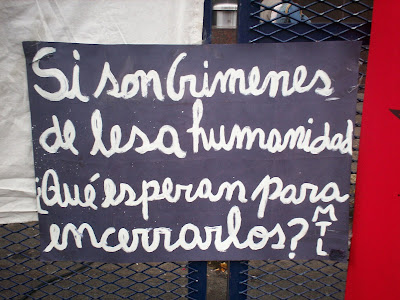 Si son Crimenes
de lesa humanidad
¿Qué esperan para
encerrarlos? MTL